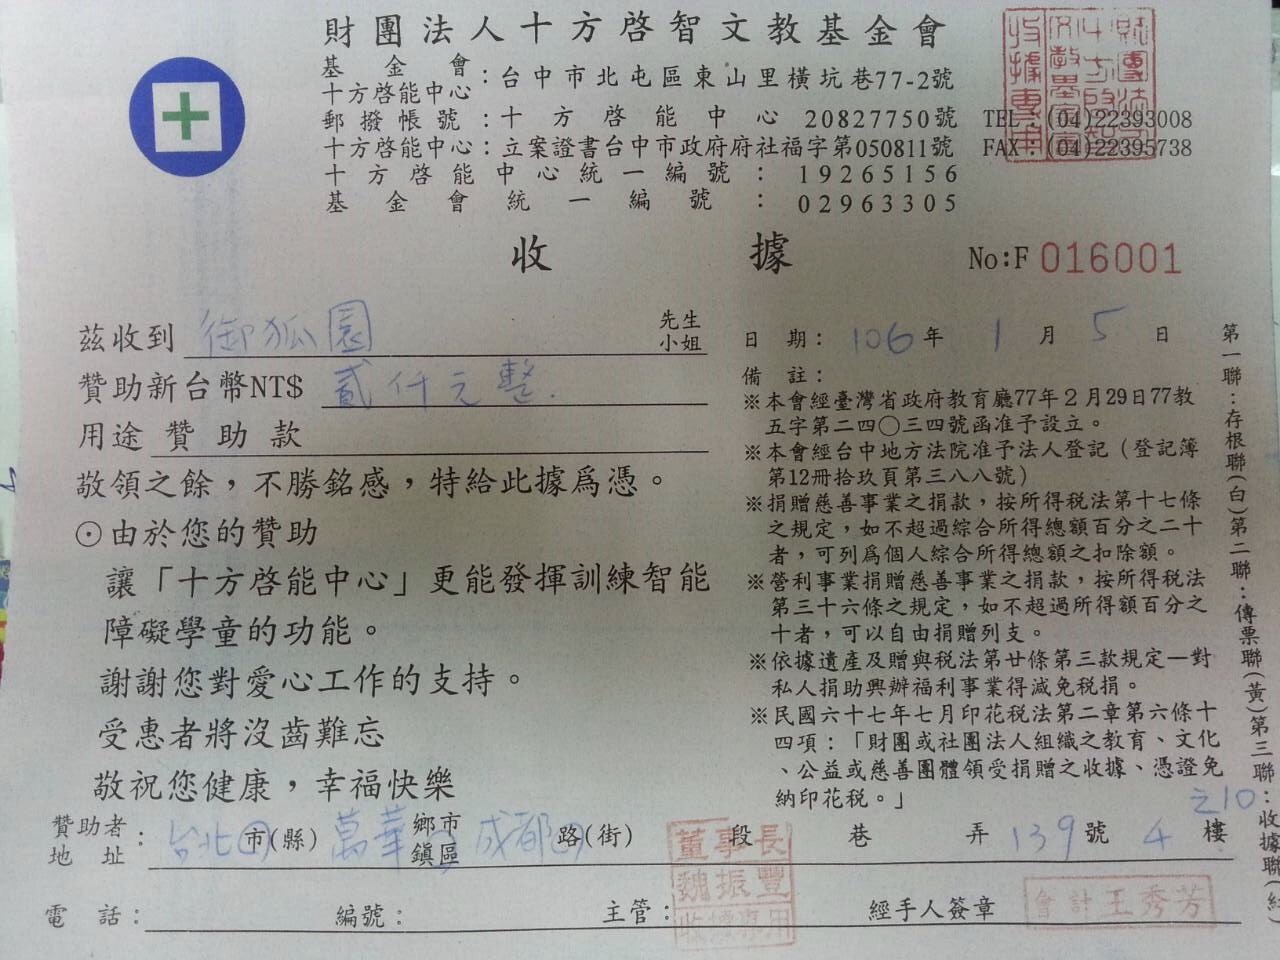 財團法人十方啓智文教基金會
基金會
十方啓能中心：台中市北屯區東山里橫坑巷77-2號
郵撥帳號：十方啓能中心 20827750號 TEL：(04)22393008
十方啓能中心：立案證書台中市政府府社福字第050811號 FAX：(04)22395738
十方啓能中心統一編號：19265156
基金會統一編號：02963305
收據
No:F 016001
茲收到 御狐園 先生
小姐
贊助新台幣NT$ 貳仟元整.
用途 贊助款
敬領之餘，不勝銘感，特給此據為憑。
⊙由於您的贊助
讓「十方啓能中心」更能發揮訓練智能
障礙學童的功能。
謝謝您對愛心工作的支持。
受惠者將沒齒難忘
敬祝您健康，幸福快樂
日期：106年1月5日
備註：
※本會經臺灣省政府教育廳77年2月29日77教
五字第二四○三四號函准予設立。
※本會經台中地方法院准予法人登記（登記簿
第12冊拾玖頁第三八八號）
※捐贈慈善事業之捐款，按所得税法第十七條
之規定，如不超過綜合所得總額百分之二十
者，可列為個人綜合所得總額之扣除額。
※營利事業捐贈慈善事業之捐款，按所得税法
第三十六條之規定，如不超過所得額百分之
十者，可以自由捐贈列支。
※依據遺產及贈與税法第廿條第三款規定一對
私人捐助興辦福利事業得減免税捐。
※民國六十七年七月印花税法第二章第六條十
四項：「財團或社團法人組織之教育、文化
、公益或慈善團體領受捐贈之收據、憑證免
納印花税。」
第一聯：存根聯(白)第二聯：傳票聯(黃)第三聯：收據聯(紅)
贊助者
地址：台北市(縣) 萬華 鄉市
鎮區 成都 路(街) 段 巷 弄 139號 4樓 之10
電話： 編號： 主管： 經手人簽章
董事長
魏振豐
收據專用
會計王秀芳